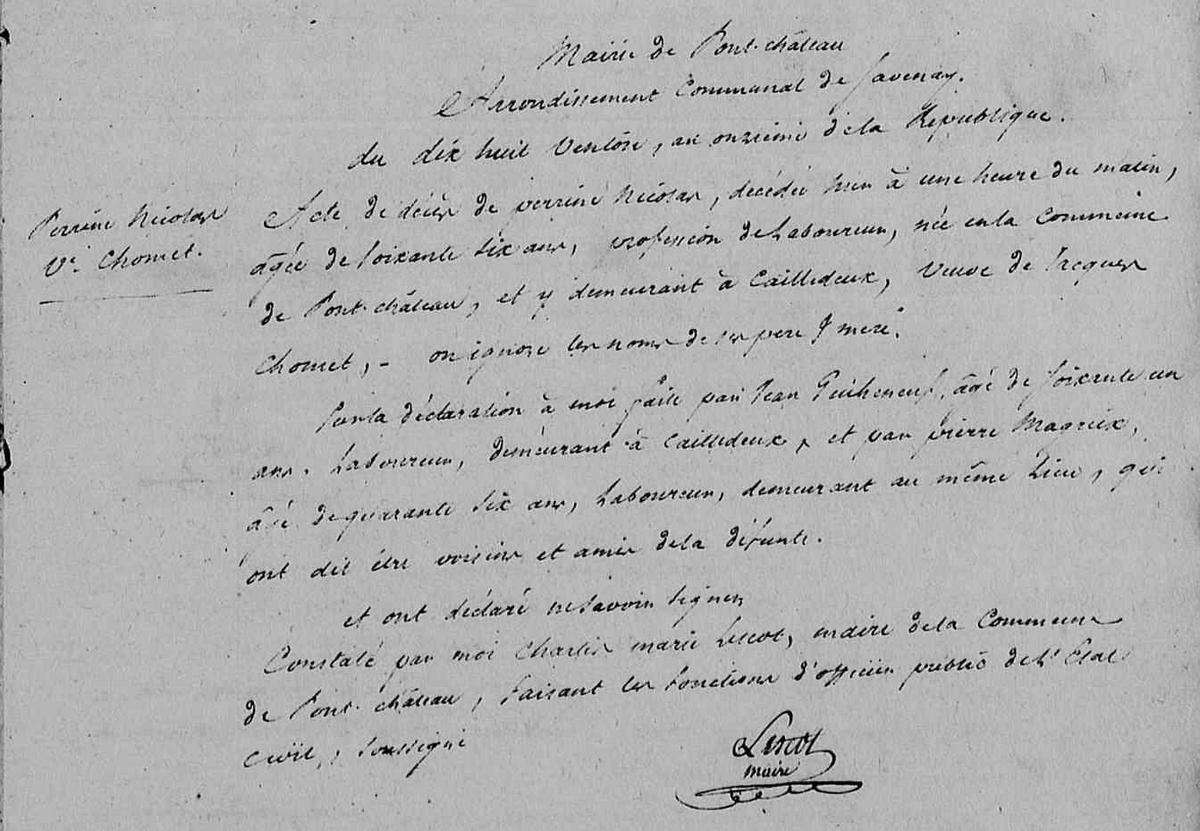 Mairie de Pont-château
Arrondissement Communal de Savenay.
du dix huit Ventôse, an onzième de la République.
Perrine Nicolas
Ve. Chomet.
Acte de décès de perrine Nicolas, décédée hier à une heure du matin,
âgée de soixante six ans, profession de Laboureur, née en la Commune
de Pont-château, et y demeurant à Cailledeux, Veuve de Jacques
Chomet, - on ignore les noms de ses pere & mere.
Sur la déclaration à moi faite par Jean Guiheneuf, âgé de soixante un
ans, Laboureur, demeurant à Cailledeux, et par pierre Magreix,
âgé de quarante six ans, Laboureur, demeurant au même Lieu, qui
ont dit être voisins et amis de la défunte.
et ont déclaré ne savoir signer
Constaté par moi Charles marie Lescot, maire de la Commune
de Pont-château, faisant les fonctions d'officier public de l'Etat
Civil, soussigné
Lescot
maire